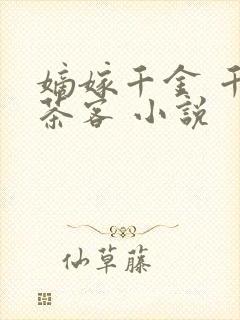 嫡嫁千金 千
茶客 小説
仙草藤